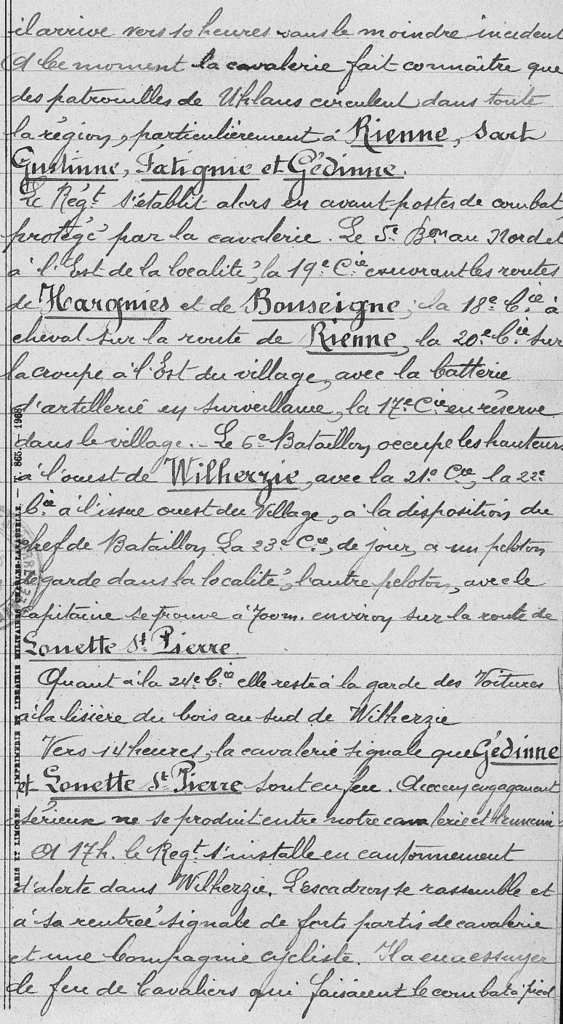 il arrive vers 10 heures sans le moindre incident
A ce moment la cavalerie fait connaître que
des patrouilles de Uhlans circulent dans toute
la région, particulièrement à Rienne, Sart
Custinne, Patignie et Gédinne.
Le Régt s'établit alors en avant-postes de combat
protégé par la cavalerie. Le 5e Bon au Nord et
à l'Est de la localité, la 19e Cie couvrant les routes
de Hargnies et de Bouseigne, la 18e Cie à
cheval sur la route de Rienne, la 20e Cie sur
la croupe à l'Est du village, avec la batterie
d'artillerie en surveillance, la 17e Cie en réserve
dans le village. - Le 6e Bataillon occupe les hauteurs
à l'ouest de Wilherzie, avec la 21e Cie, la 22e
Cie à l'issue ouest du village, à la disposition du
chef de Bataillon. La 23e Cie, de jour, a un peloton
de garde dans la localité, l'autre peloton, avec le
capitaine se trouve à 700m. environ sur la route de
Lonette St Pierre.
Quant à la 24e Cie elle reste à la garde des voitures
à la lisière du bois au sud de Wilherzie
Vers 14 heures, la cavalerie signale que Gédinne
et Lonette St Pierre sont en feu. Aucun engagement
sérieux ne se produit entre notre cavalerie et l'ennemi.
A 17h. le Régt s'installe en cantonnement
d'alerte dans Wilherzie. L'escadron se rassemble et
à sa rentrée signale de forts partis de cavalerie
et une Compagnie cycliste. Il a eu à essuyer
de feu de cavaliers qui faisaient le combat à pied
PARIS ET LIMOGES. IMPRIMERIE ET LIBRAIRIE MILITAIRES CHARLES-LAVAUZELLE. 1908